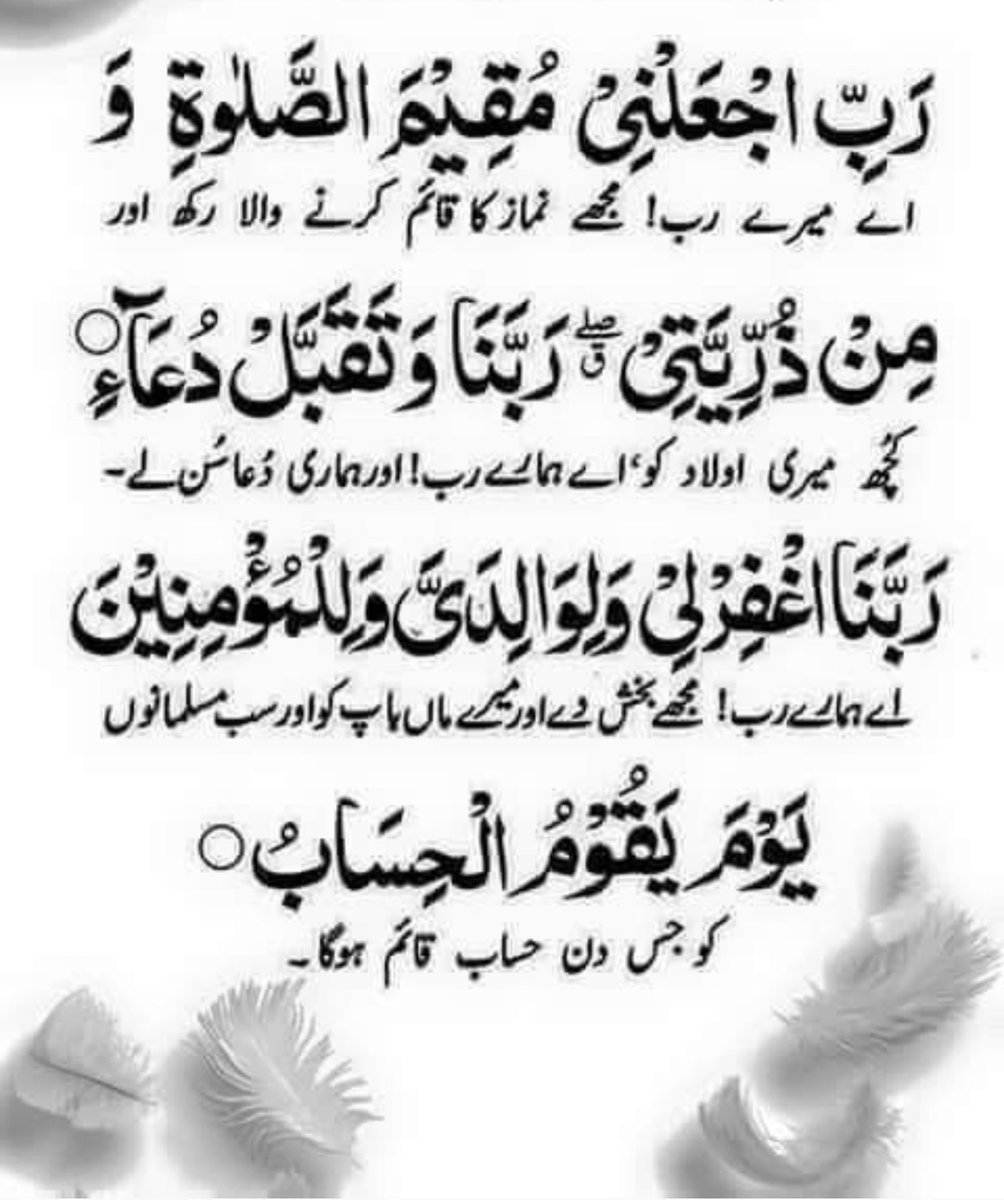 رَبِّ اجْعَلْنِيْ مُقِيْمَ الصَّلٰوةِ وَ
اے میرے رب! مجھے نماز کا قائم کرنے والا رکھ اور
مِنْ ذُرِّيَّتِيْ ۖۗ رَبَّنَا وَتَقَبَّلْ دُعَآءِ ○
کچھ میری اولاد کو، اے ہمارے رب! اور ہماری دُعا سُن لے۔
رَبَّنَا اغْفِرْ لِيْ وَلِوَالِدَيَّ وَلِلْمُؤْمِنِيْنَ
اے ہمارے رب! مجھے بخش دے اور میرے ماں باپ کو اور سب مسلمانوں
يَوْمَ يَقُوْمُ الْحِسَابُ ○
کو جس دن حساب قائم ہوگا۔